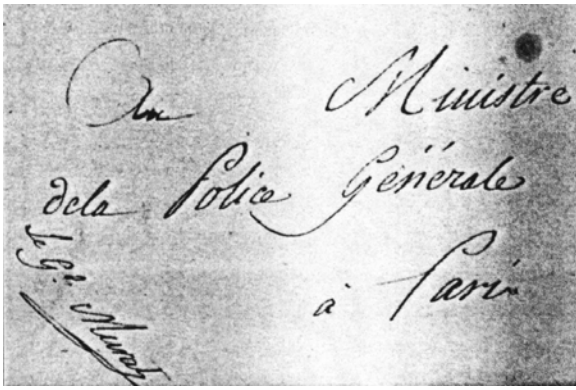 Au Ministre
dela Police Générale
à Paris
le G.al Murat